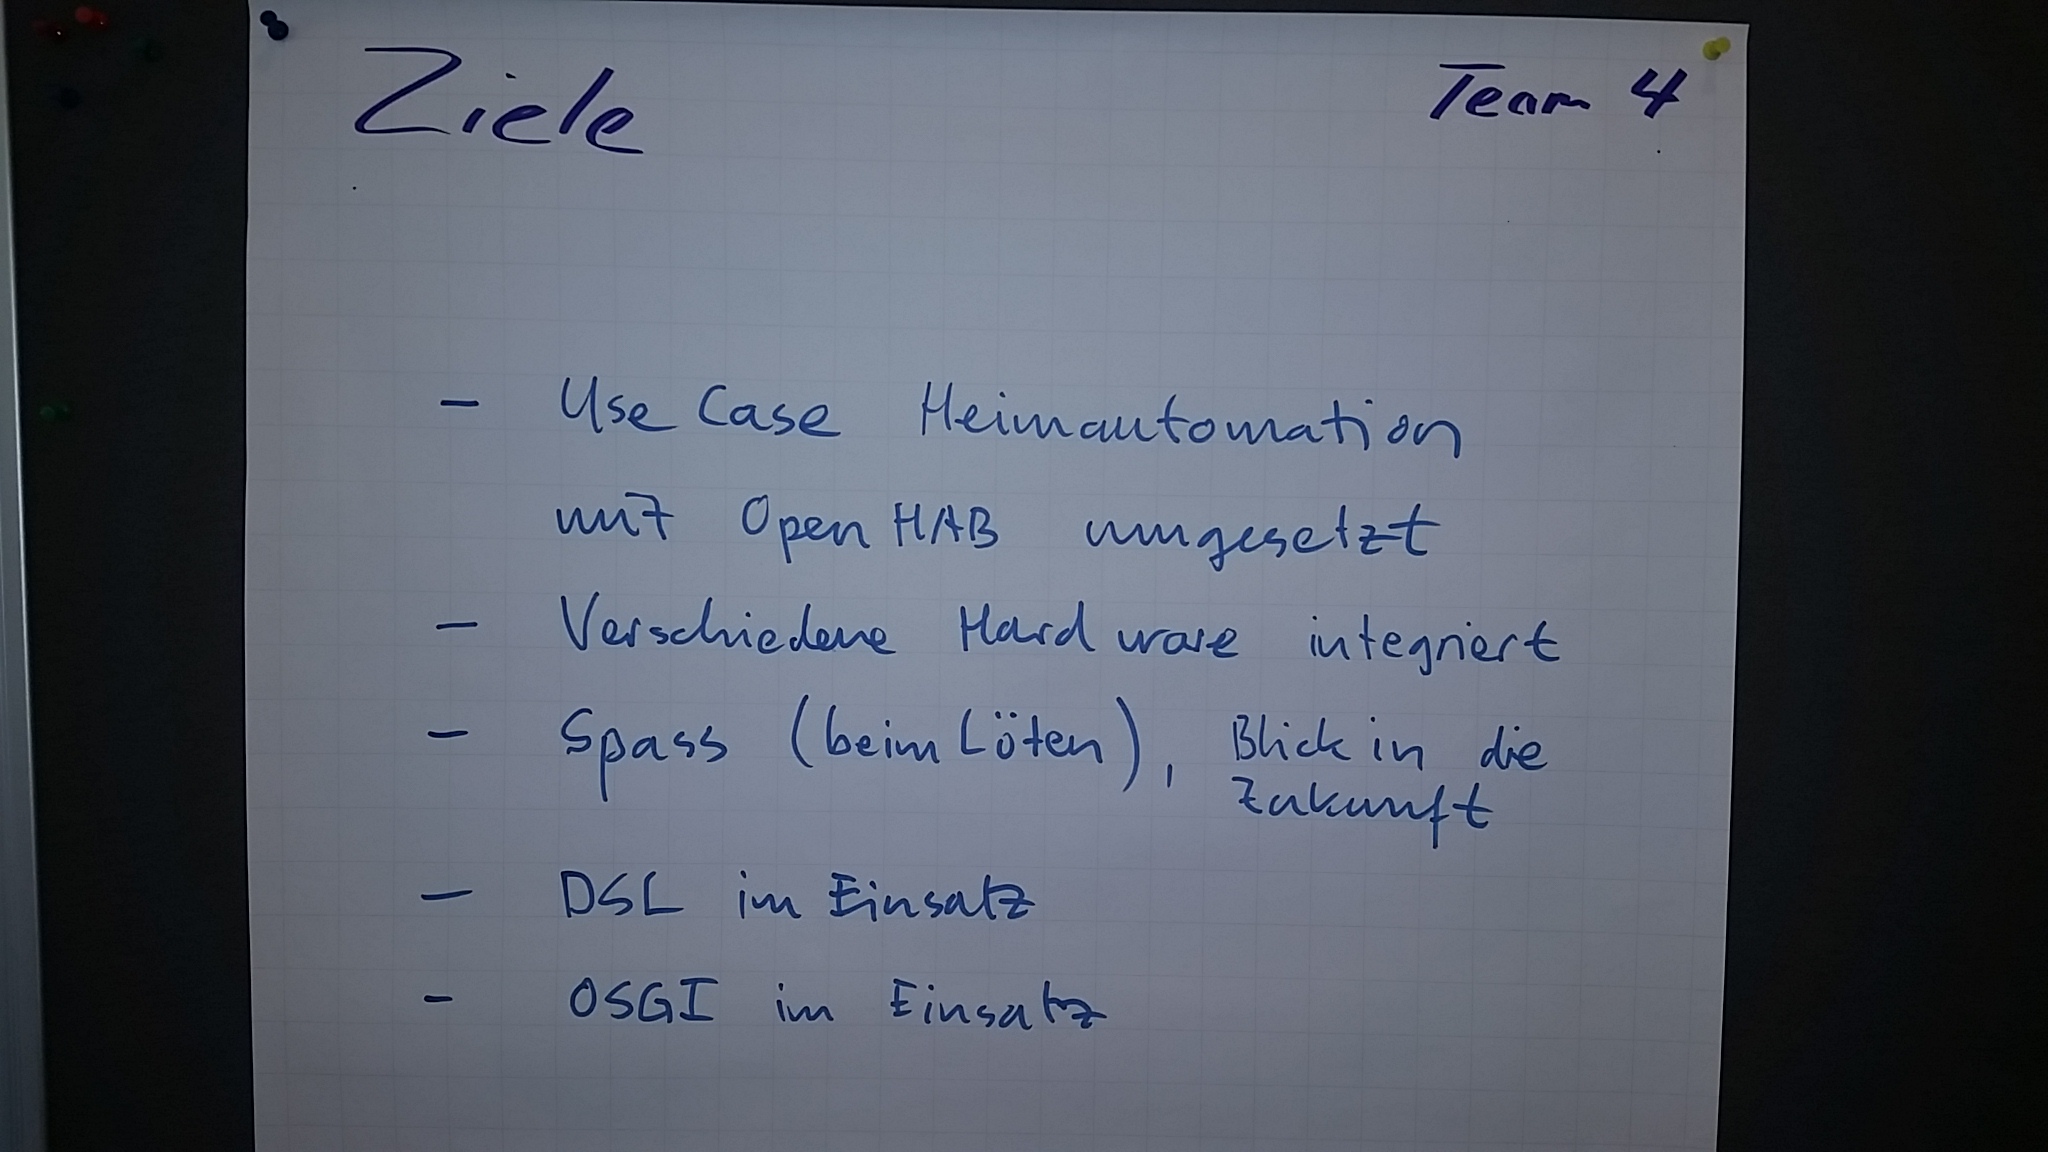 Ziele
Team 4
- Use Case Heimautomation
mit OpenHAB umgesetzt
- Verschiedene Hardware integriert
- Spass (beim Löten), Blick in die
Zukunft
- DSL im Einsatz
- OSGI im Einsatz